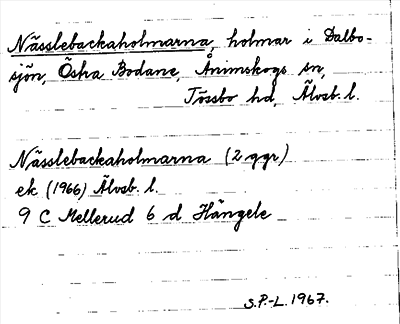 Nässlebackaholmarna, holmar i Dalbo-
sjön, Östra Bodane, Ånimskogs sn,
Tössbo hd, Älvsb. l.
Nässlebackaholmarna (2 ggr)
ek (1966) Älvsb. l.
9 C Mellerud 6 d Hängele
S.P.-L. 1967.